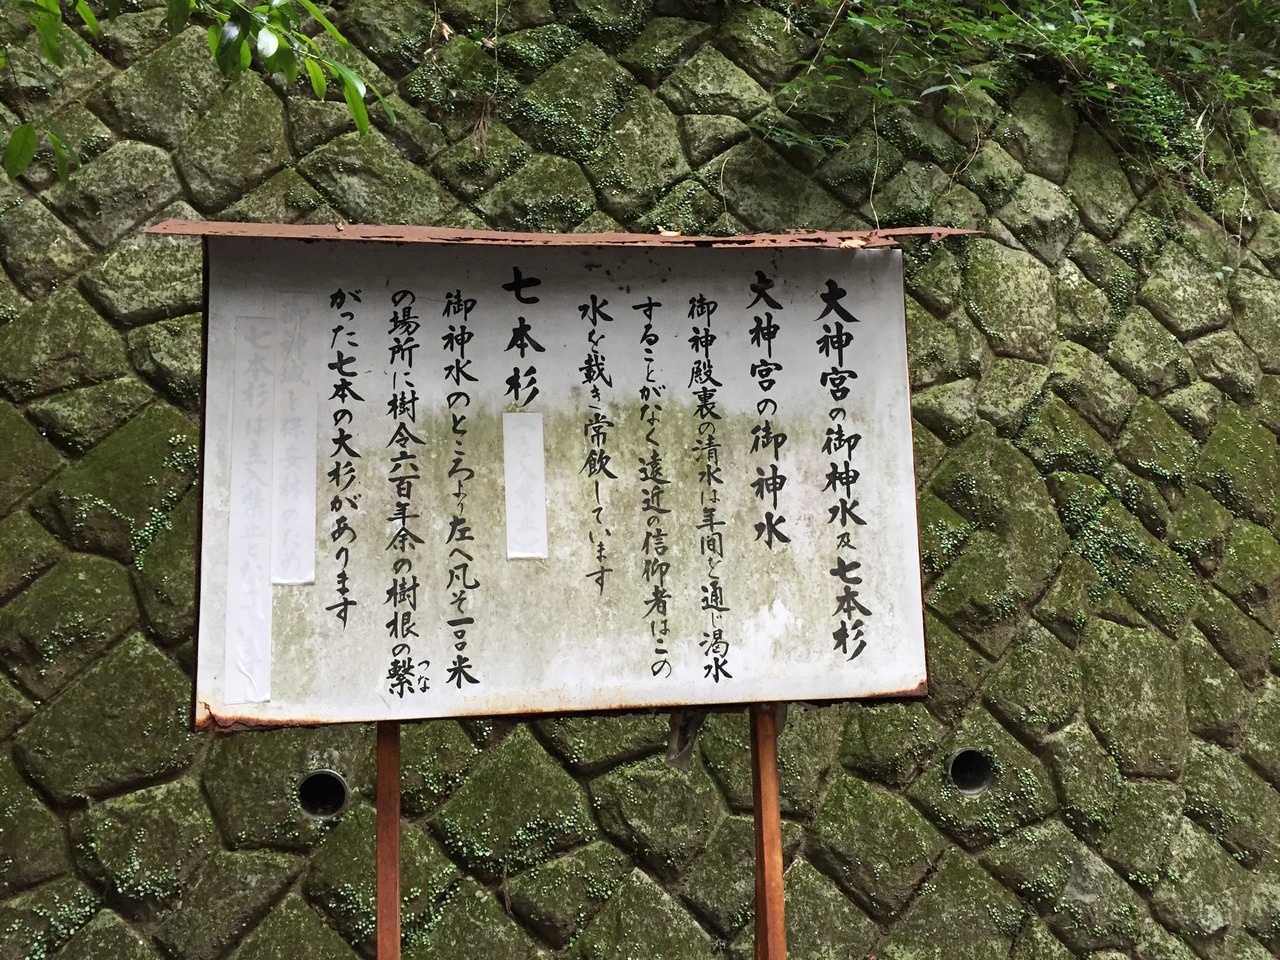 大神宮の御神水及七本杉
大神宮の御神水
御神殿裏の清水は年間を通じ渇水
することがなく遠近の信仰者はこの
水を戴き常飲しています
七本杉
御神水のところより左へ凡そ一〇米
の場所に樹令六百年余の樹根の繋
つな
がった七本の大杉があります